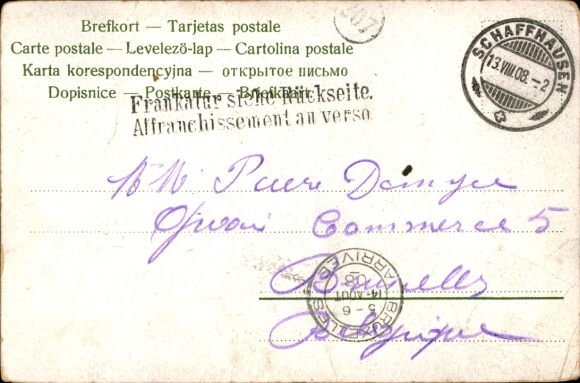 Brefkort — Tarjetas postale
Carte postale — Levelezö-lap — Cartolina postale
Karta korespondencyjna — открытое письмо
Dopisnice — Postkarte — Briefkaart
Frankatur siehe Rückseite.
Affranchissement au verso
SCHAFFHAUSEN
13.VIII.08.–2
Pierre
Commerce 5
Bruxelles
Belgique
BRUXELLES
5–6
14 AOUT
08
ARRIVEE